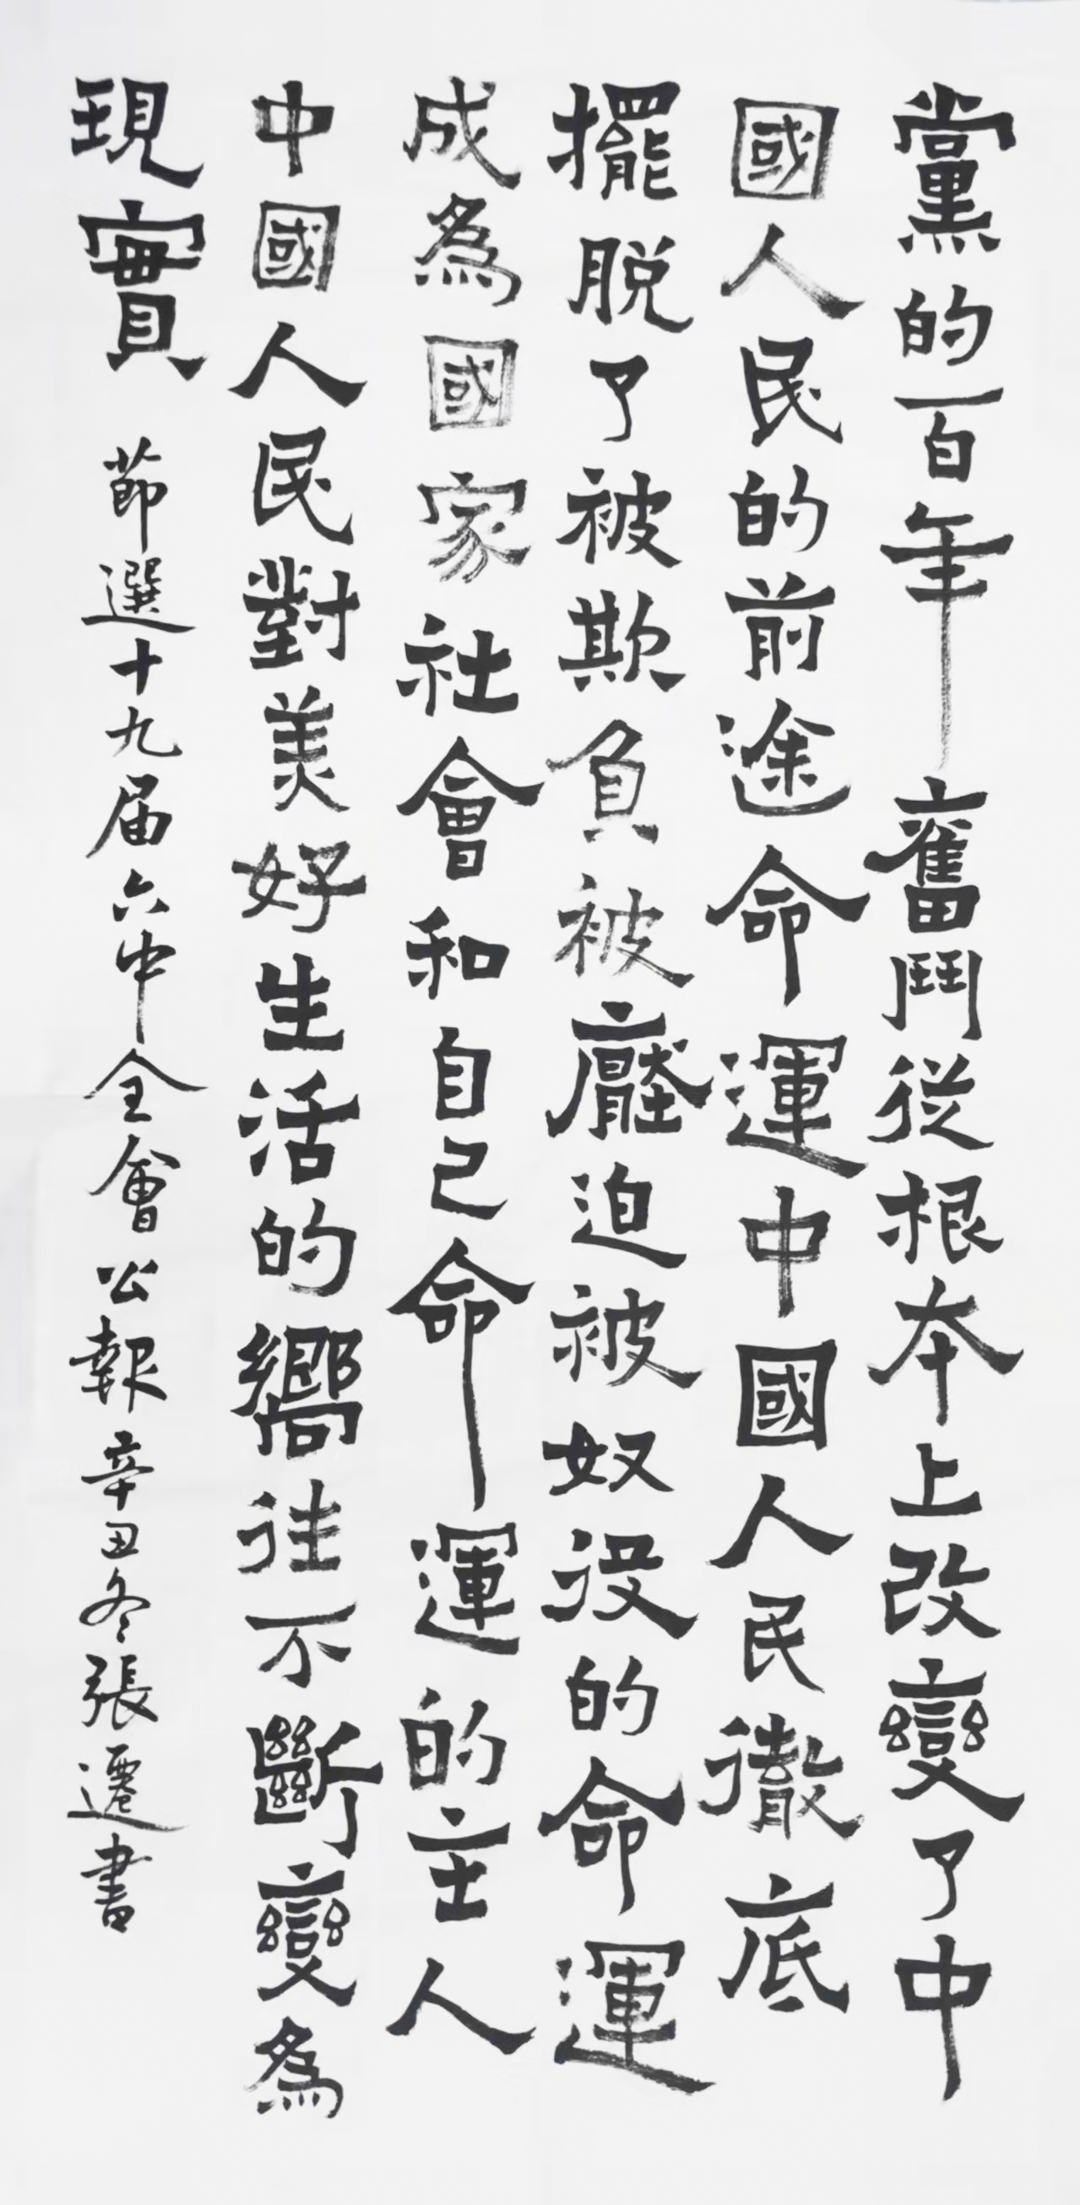 黨的百年奮鬥從根本上改變了中
國人民的前途命運中國人民徹底
擺脱了被欺負被壓迫被奴役的命運
成為國家社會和自己命運的主人
中國人民對美好生活的嚮往不斷變為
現實
節選十九届六中全會公報辛丑冬張遷書